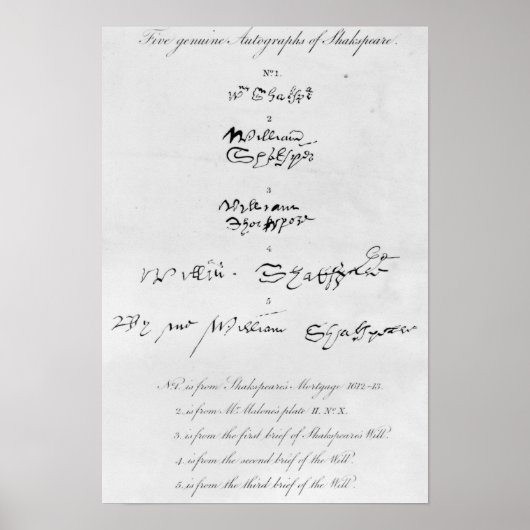 Five genuine Autographs of Shakspeare.
No. 1.
Wm Shakspe
2
William
Shakspere
3
William
Shakspere
4
Willm Shakspere
5
By me William Shakspeare
No. 1. is from Shakspeare's Mortgage 1612-13.
2. is from Mr. Malone's plate II. No. X.
3. is from the first brief of Shakspeare's Will.
4. is from the second brief of the Will.
5. is from the third brief of the Will.